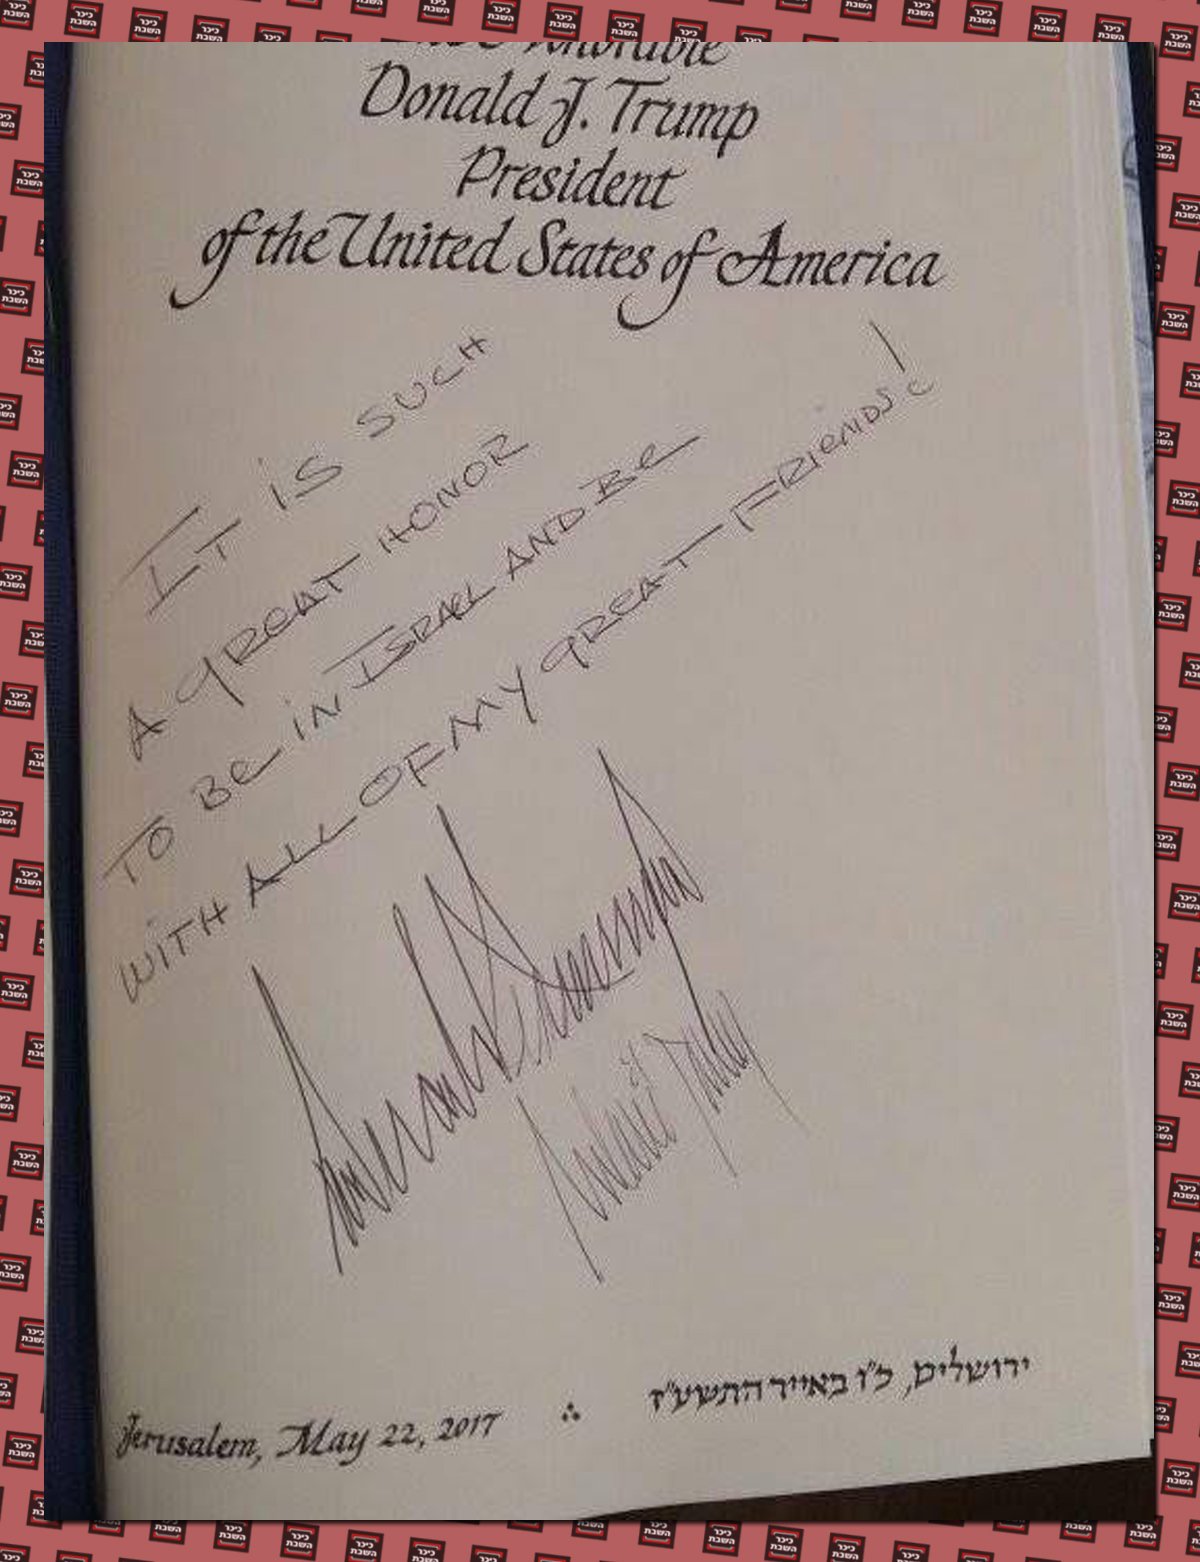 Donald J. Trump
President
of the United States of America
IT IS SUCH
A GREAT HONOR
TO BE IN ISRAEL AND BE
WITH ALL OF MY GREAT FRIENDS!
Jerusalem, May 22, 2017
ירושלים, כ"ו באייר התשע"ז
כיכר
השבת